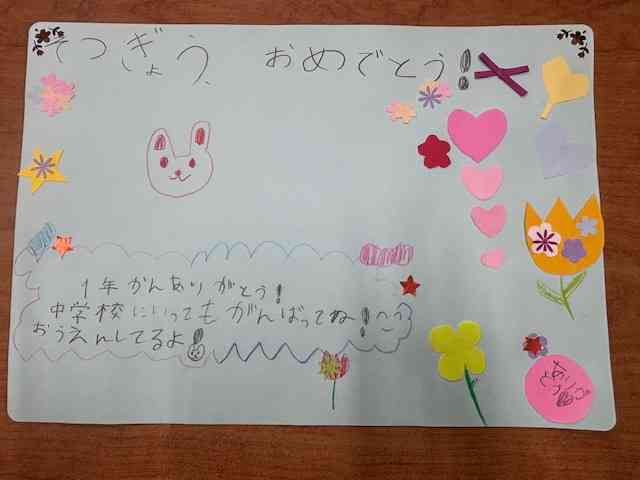 そつぎょう、おめでとう!
1年かんありがとう!
中学校にいってもがんばってね!
おうえんしてるよ!